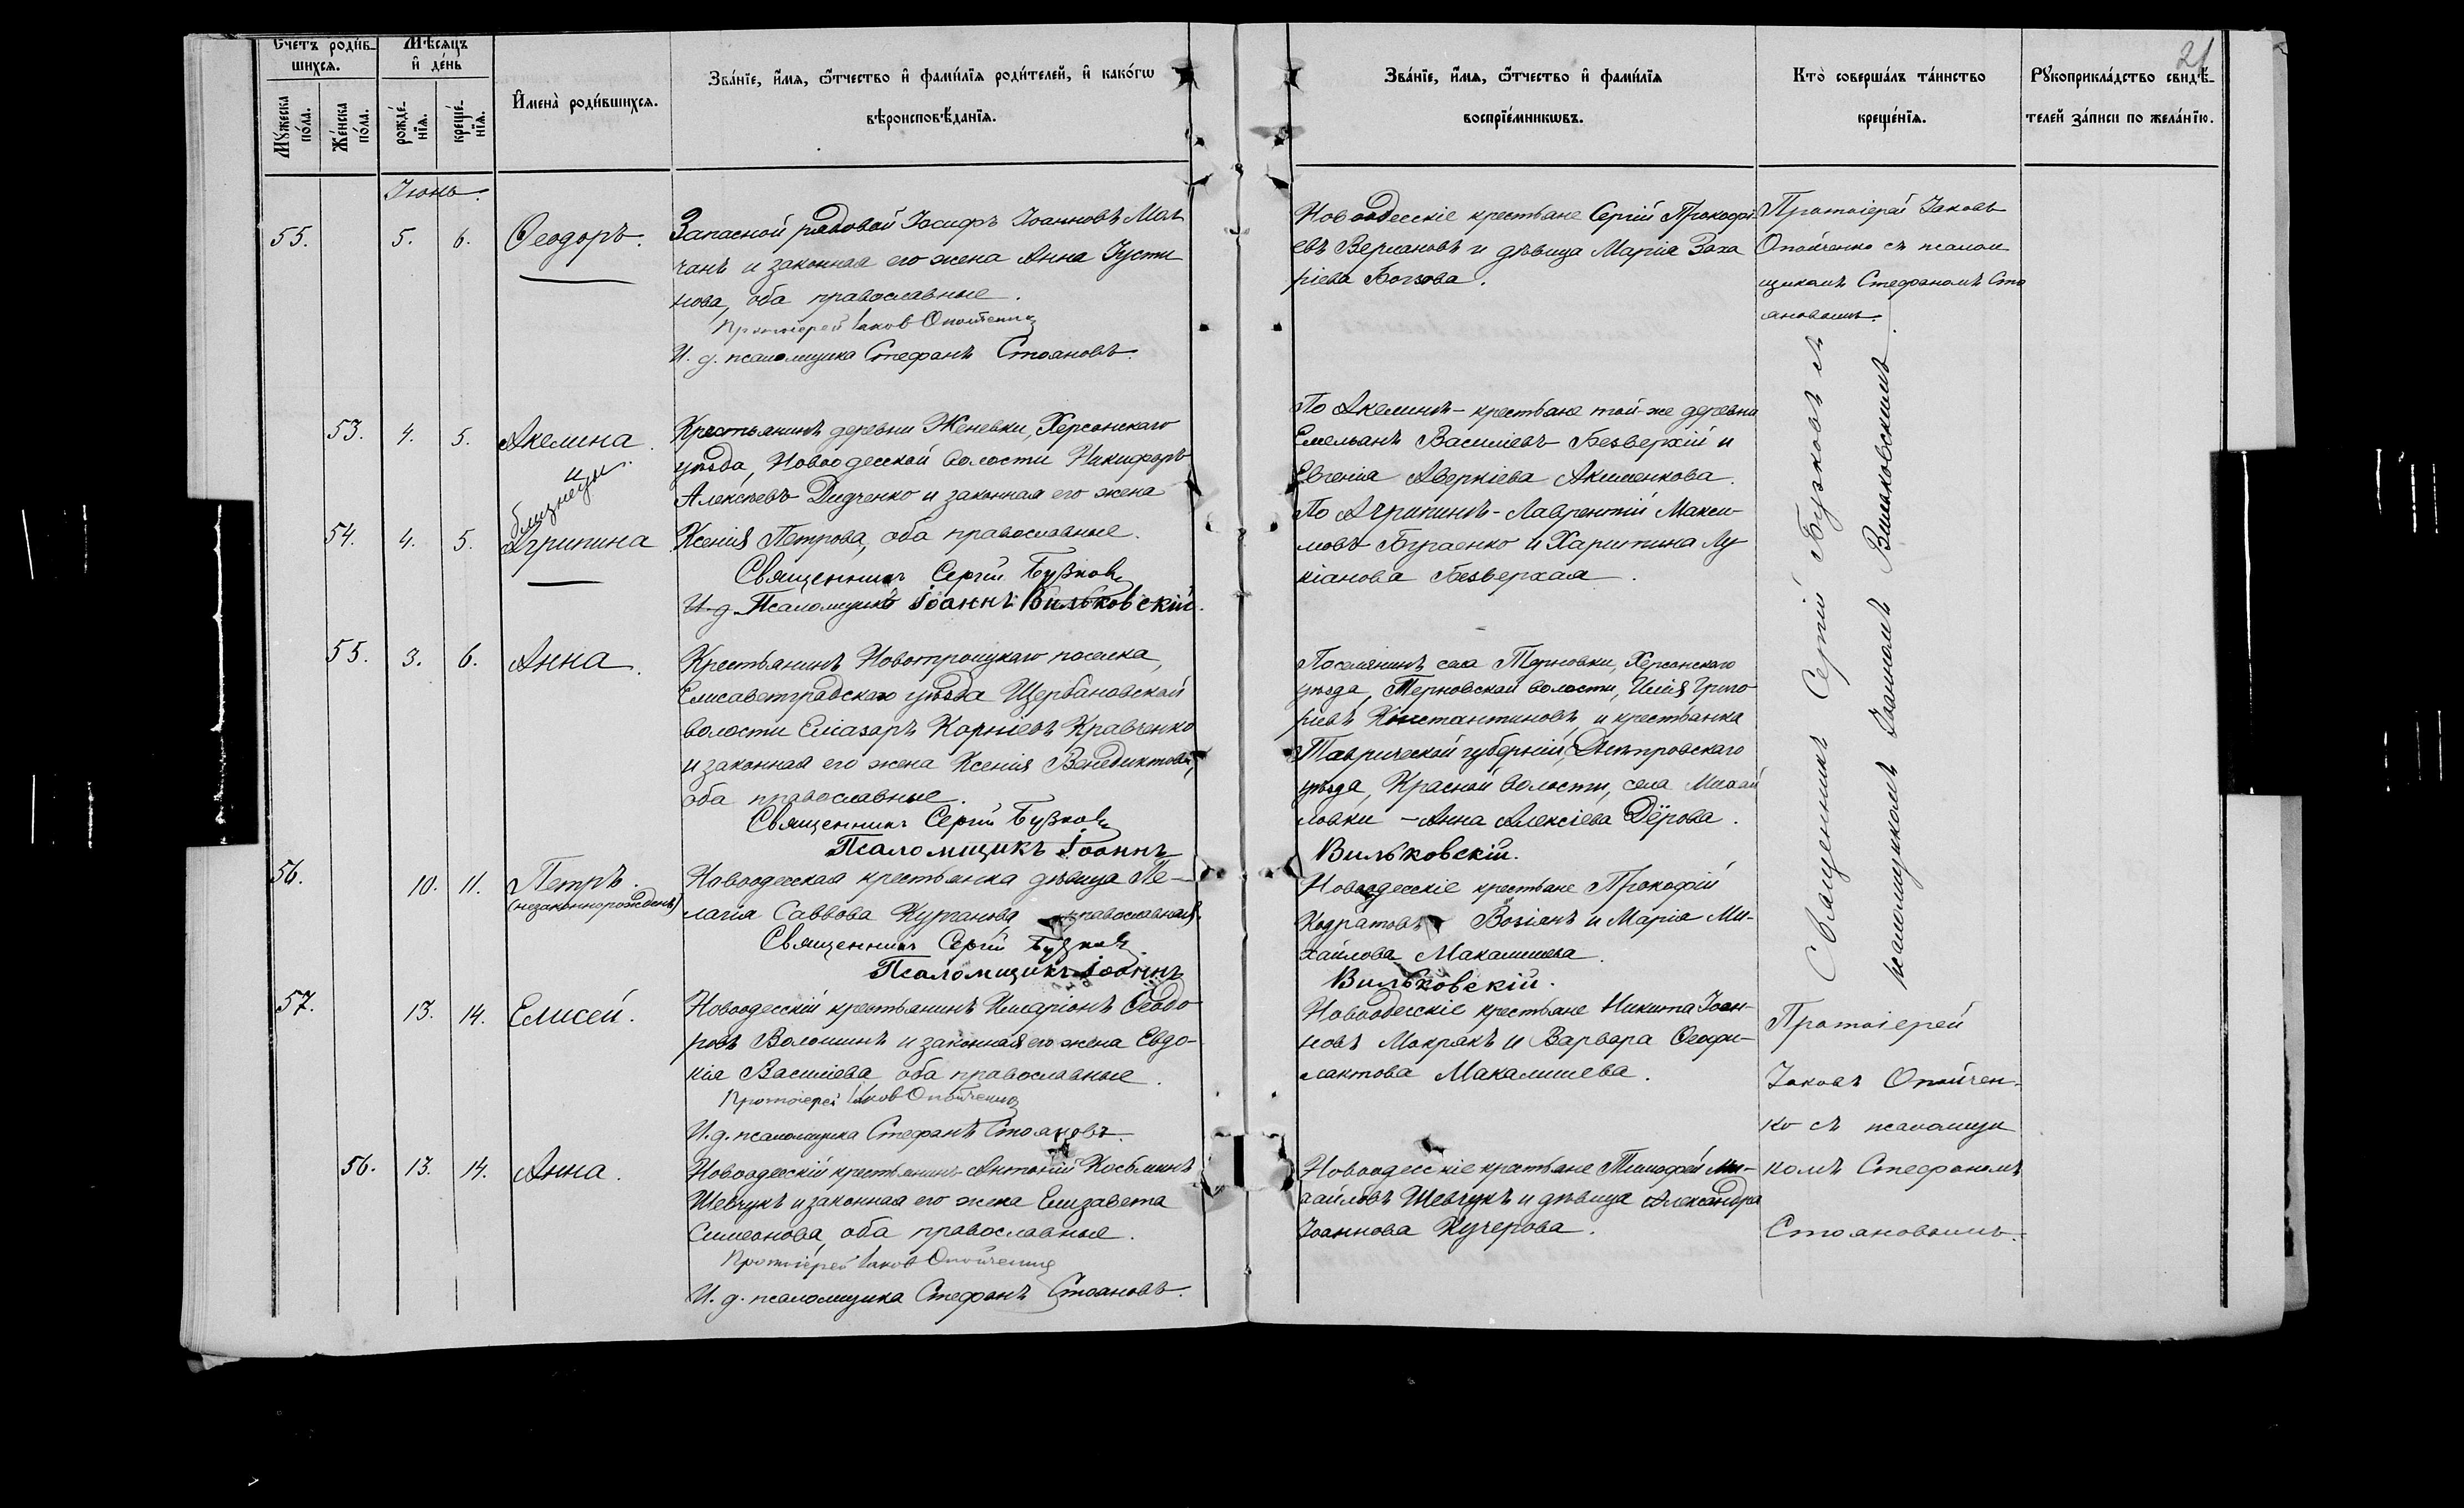 21
Счетъ роди́в-
шихсѧ.
Мѣ́сѧцъ
и҆ де́нь
Мꙋ́жеска
по́ла.
Же́нска
по́ла.
рожде́-
нїѧ.
креще́-
нїѧ.
И҆мена̀ роди́вшихсѧ.
Зва́нїе, и҆́мѧ, ѻ҆́тчество и҆ фами́лїѧ роди́телей, и҆ како́гѡ
вѣроисповѣ́данїѧ.
Зва́нїе, и҆́мѧ, ѻ҆́тчество и҆ фами́лїѧ
воспрїе́мникѡвъ.
Кто̀ соверша́лъ та́инство
креще́нїѧ.
Рꙋкоприкла́дство свидѣ́-
телей за́писи по жела́нїю.
Іюнь.
55. 5. 6. Ѳеодоръ.
Запасной рядовой Іосифъ Іоанновъ Мол
чанъ и законная его жена Анна Іусти
нова, оба православные.
Протоіерей Іаковъ Опойченко
И. д. псаломщика Стефанъ Стояновъ.
Новоодесскіе крестьане Сергій Прокофі
евъ Версановъ и дѣвица Марія Заха
ріева Богзова.
Протоіерей Іаковъ
Опойченко съ псалом
щикомъ Стефаномъ Сто
яновымъ.
53. 4. 5. Акелина
и
близнецы
54. 4. 5. Агрипина
Крестьянинъ деревни Женевки, Херсонскаго
уѣзда, Новоодесской волости Никифоръ
Алексѣевъ Дидченко и законная его жена
Ксенія Петрова, оба православные.
Священникъ Сергій Бузковъ
И. д. Псаломщикъ Іоаннъ Вильковскій.
По Акелинѣ - крестьане той-же деревни
Емельанъ Василіевъ Безверхій и
Евгенія Аверкіева Акименкова.
По Агрипинѣ - Лаврентій Макси-
мовъ Бугаенко и Харитина Лу
кіанова Безверхая.
Священникъ Сергій Бузковъ съ
псаломщикомъ Іоанномъ Вильковскимъ.
55. 3. 6. Анна.
Крестьянинъ Новотроицкаго поселка,
Елисаветградскаго уѣзда Щербановской
волости Еліазаръ Карніевъ Кравченко
и законная его жена Ксенія Венедиктова,
оба православные.
Священникъ Сергій Бузковъ
Псаломщикъ Іоаннъ
Поселянинъ села Терновки, Херсонскаго
уѣзда, Терновской волости, Илія Григо
ріевъ Константиновъ, и крестьанка
Таврической губерніи, Днѣпровскаго
уѣзда, Красной волости, села Михай
ловки - Анна Алексіева Дёрова.
Вильковскій.
56. 10. 11. Петръ.
(незаконнорожденъ)
Новоодесская крестьянка дѣвица Пе-
лагія Саввова Курганова, православная.
Священникъ Сергій Бузковъ
Псаломщикъ Іоаннъ
Новоодесскіе крестьане Прокофій
Кодратовъ Возіанъ и Марія Ми-
хайлова Макалишева.
Вильковскій.
57. 13. 14. Елисей.
Новоодесскій крестьянинъ Иларіонъ Ѳеодо-
ровъ Волошинъ и законная его жена Евдо-
кія Василіева оба православные.
Протоіерей Іаковъ Опойченко
И. д. псаломщика Стефанъ Стояновъ.
Новоодесскіе крестьане Никита Іоан-
новъ Мокракъ и Варвара Ѳеофи-
лактова Макалишева.
Протоіерей
Іаковъ Опойчен-
ко съ псаломщи
комъ Стефаномъ
Стояновымъ.
56. 13. 14. Анна.
Новоодесскій крестьянинъ Антоній Косьминъ
Шевчукъ и законная его жена Елизавета
Симеонова, оба православные.
Протоіерей Іаковъ Опойченко
И. д. псаломщика Стефанъ Стояновъ.
Новоодесскіе крестьане Тимофей Ми-
хайловъ Шевчукъ и дѣвица Александра
Іоаннова Кучерова.